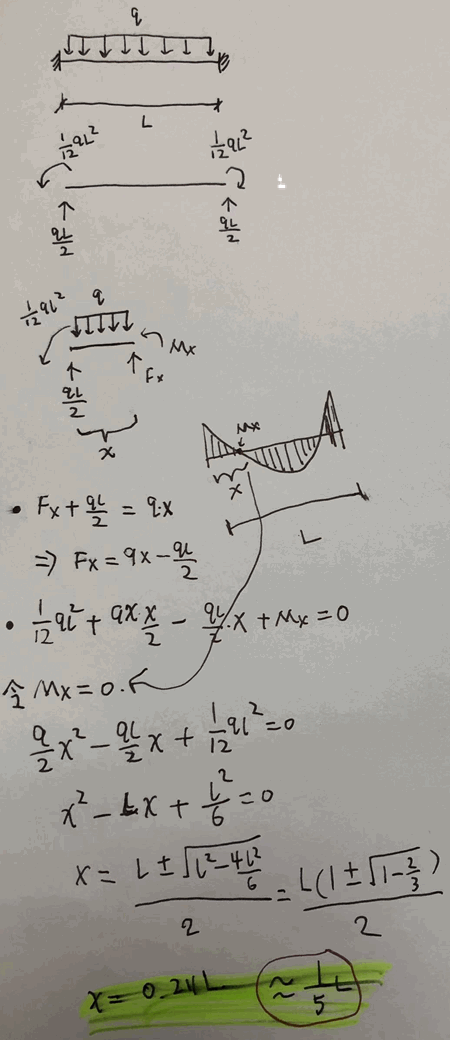 q
L
1/12 qL² 1/12 qL²
qL/2 qL/2
1/12 qL² q
Mx
Fx
qL/2
x
Mx
x
L
• Fx + qL/2 = q·x
⇒ Fx = qx - qL/2
• 1/12 qL² + qx x/2 - qL/2·x + Mx = 0
令 Mx = 0.
q/2 x² - qL/2 x + 1/12 qL² = 0
x² - Lx + L²/6 = 0
x = (L ± √(L² - 4L²/6))/2 = L(1 ± √(1 - 2/3))/2
x = 0.21L ≈ 1/5 L